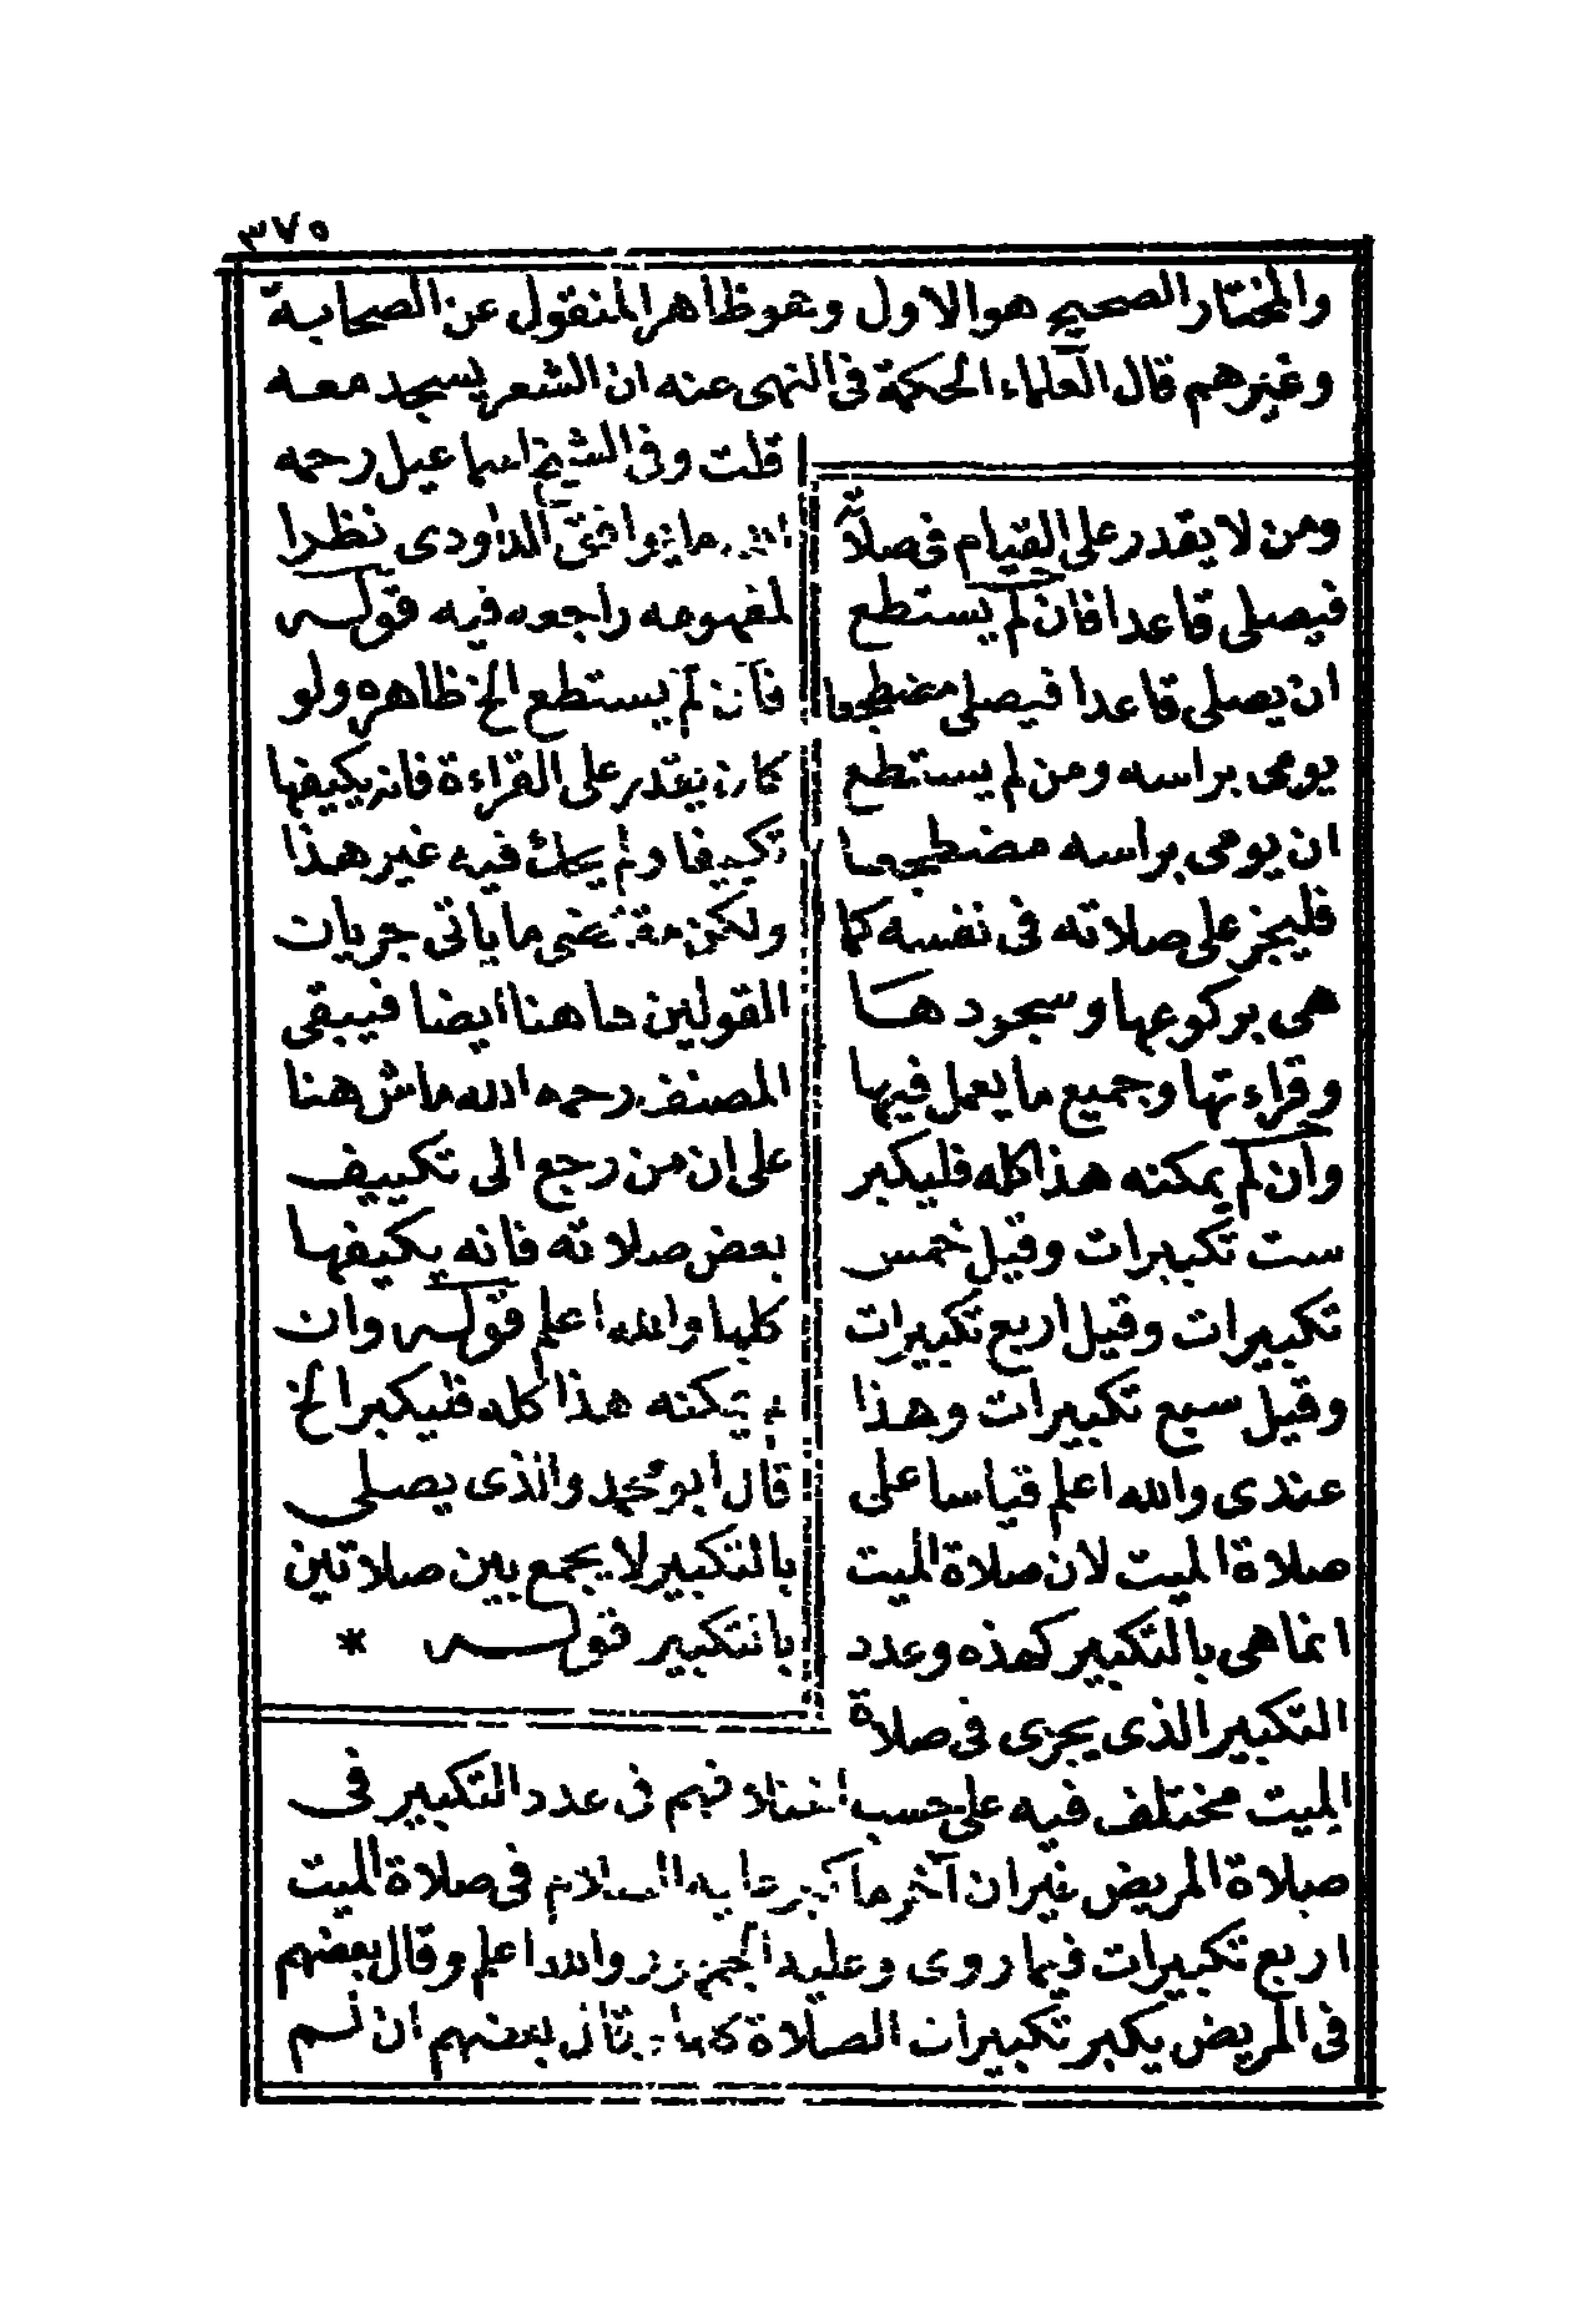 ٣٧٥
والمختار الصحيح هو الاول وهو ظاهر المنقول عن الصحابة
وغيرهم قال العلماء الحكمة فى النهى عنه ان الشعر يسجد معه
ومن لا يقدر على القيام فى صلاته
فيصلى قاعدا فان لم يستطع
ان يصلى قاعدا فيصلى مضطجعا
يومى براسه ومن لم يستطع
ان يومى براسه مضطجعا
فليجز على صلاته فى نفسه كما
هى بركوعها وسجودها
وقراءتها وجميع ما يعمل فيها
وان لم يمكنه هذا كله فليكبر
ست تكبيرات وقيل خمس
تكبيرات وقيل اربع تكبيرات
وقيل سبع تكبيرات وهذا
عندى والله اعلم قياسا على
صلاة الميت لان صلاة الميت
انما هى بالتكبير كهذه وعدد
التكبير الذى يجزى فى صلاة
قلت وفى الشيخ اسماعيل رحمه
الله ما يوافق الداودى نظرا
لمفهومه راجعه فيه قوله
فان لم يستطع الخ ظاهره ولو
كان يقدر على القراءة فانه يكيفها
تكييفا ولم يحك فيه غير هذا
ولكن مقتضى ما ياتى جريات
القولين هاهنا ايضا فيبقى
المصنف رحمه الله ماش هنا
على ان من رجع الى تكييف
بعض صلاته فانه يكيفها
كلها والله اعلم قوله وان
لم يمكنه هذا كله فليكبر الخ
قال ابو محمد والذى يصلى
بالتكبير لا يجمع بين صلاتين
بالتكبير قوله *
الميت مختلف فيه على حسب اختلافهم فى عدد التكبير فى
صلاة المريض غير ان آخر ما كبر عليه السلام فى صلاة الميت
اربع تكبيرات فيما روى وعليه الجمهور والله اعلم وقال بعضهم
فى المريض يكبر تكبيرات الصلاة كلها وقال بعضهم ان لم